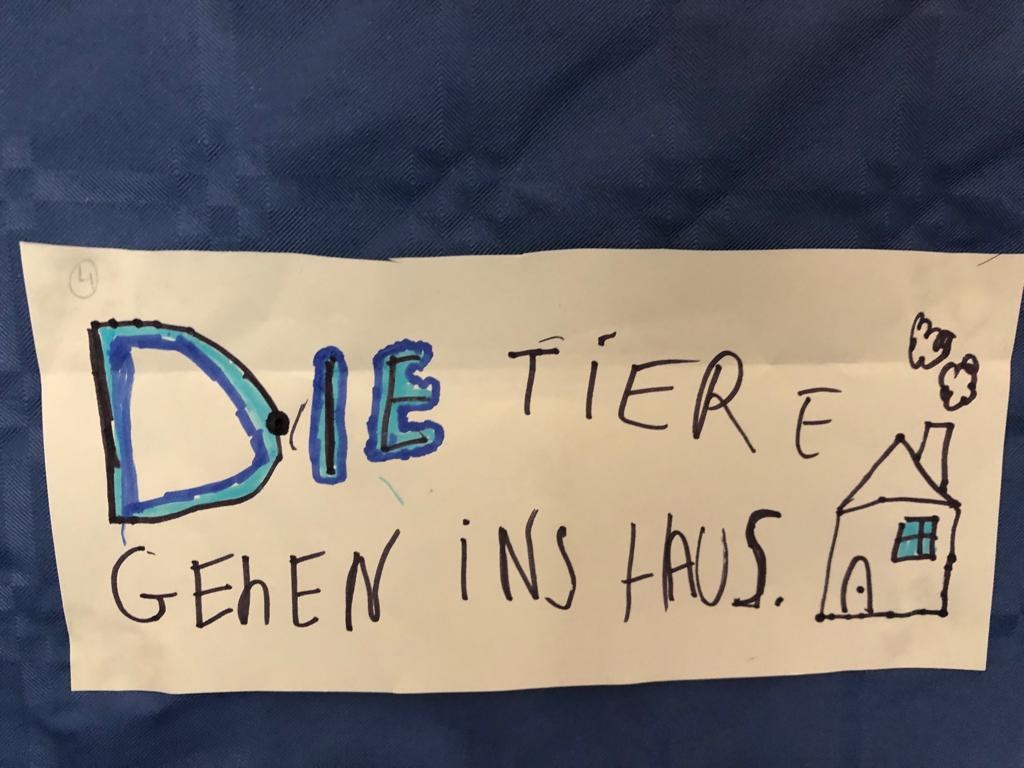 4
DIE TiERE
GEhEN iNS HAUS.